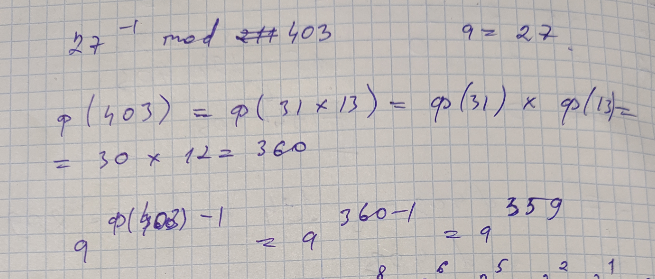 27⁻¹ mod 403 a = 27
φ(403) = φ(31 × 13) = φ(31) × φ(13) =
= 30 × 12 = 360
a^φ(403)-1 = a^360-1 = a^359
8 6 5 2 1